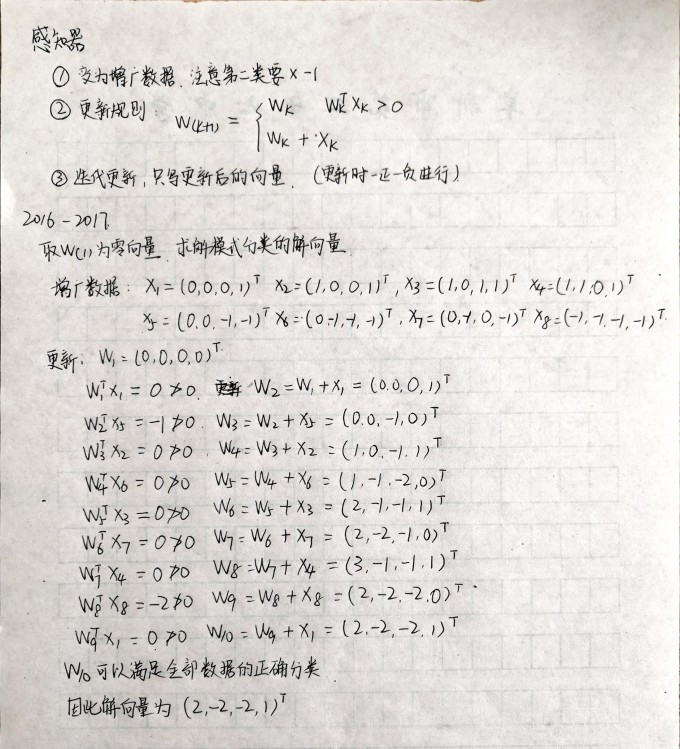 感知器
① 变为增广数据. 注意第二类要 × -1
② 更新规则 W(k+1) = { Wk WkᵀXk > 0
Wk + Xk
③ 迭代更新, 只写更新后的向量. (更新时一正一负进行)
2016-2017
取W(1)为零向量. 求解模式分类的解向量
增广数据: X₁=(0,0,0,1)ᵀ X₂=(1,0,0,1)ᵀ, X₃=(1,0,1,1)ᵀ X₄=(1,1,0,1)ᵀ
X₅=(0,0,-1,-1)ᵀ X₆=(0,-1,-1,-1)ᵀ, X₇=(0,-1,0,-1)ᵀ X₈=(-1,-1,-1,-1)ᵀ.
更新: W₁=(0,0,0,0)ᵀ.
W₁ᵀX₁ = 0 ≯ 0. 更新 W₂=W₁+X₁ = (0,0,0,1)ᵀ
W₂ᵀX₅ = -1 ≯ 0. W₃=W₂+X₅ = (0,0,-1,0)ᵀ
W₃ᵀX₂ = 0 ≯ 0. W₄=W₃+X₂ = (1,0,-1,1)ᵀ
W₄ᵀX₆ = 0 ≯ 0 W₅=W₄+X₆ = (1,-1,-2,0)ᵀ
W₅ᵀX₃ = 0 ≯ 0 W₆=W₅+X₃ = (2,-1,-1,1)ᵀ
W₆ᵀX₇ = 0 ≯ 0 W₇=W₆+X₇ = (2,-2,-1,0)ᵀ
W₇ᵀX₄ = 0 ≯ 0 W₈=W₇+X₄ = (3,-1,-1,1)ᵀ
W₈ᵀX₈ = -2 ≯ 0 W₉=W₈+X₈ = (2,-2,-2,0)ᵀ
W₉ᵀX₁ = 0 ≯ 0 W₁₀=W₉+X₁ = (2,-2,-2,1)ᵀ
W₁₀可以满足全部数据的正确分类
因此解向量为 (2,-2,-2,1)ᵀ